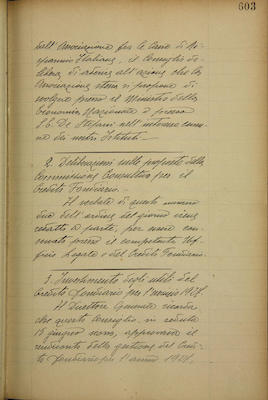 603
dell'Associazione fra le Casse di Ri-
sparmio Italiane, il Consiglio de-
libera di aderire all'azione che la
Associazione stessa si propone di
svolgere presso il Ministro della
Economia Nazionale e presso
S. E. De Stefani nell'interesse comu-
ne dei nostri Istituti.
2. Deliberazioni sulle proposte della
Commissione Consultiva per il
Credito Fondiario.
Il verbale di questo numero
dell'ordine del giorno viene
redatto a parte, per essere con-
servato presso il competente Uf-
ficio Legale e del Credito Fondiario.
3. Investimento degli utili del
Credito Fondiario per l'anno 1924.
Il Direttore Generale ricorda
che questo Consiglio, in seduta
15 giugno, approvava il
rendiconto della gestione del Credi-
to Fondiario per l'anno 1924.